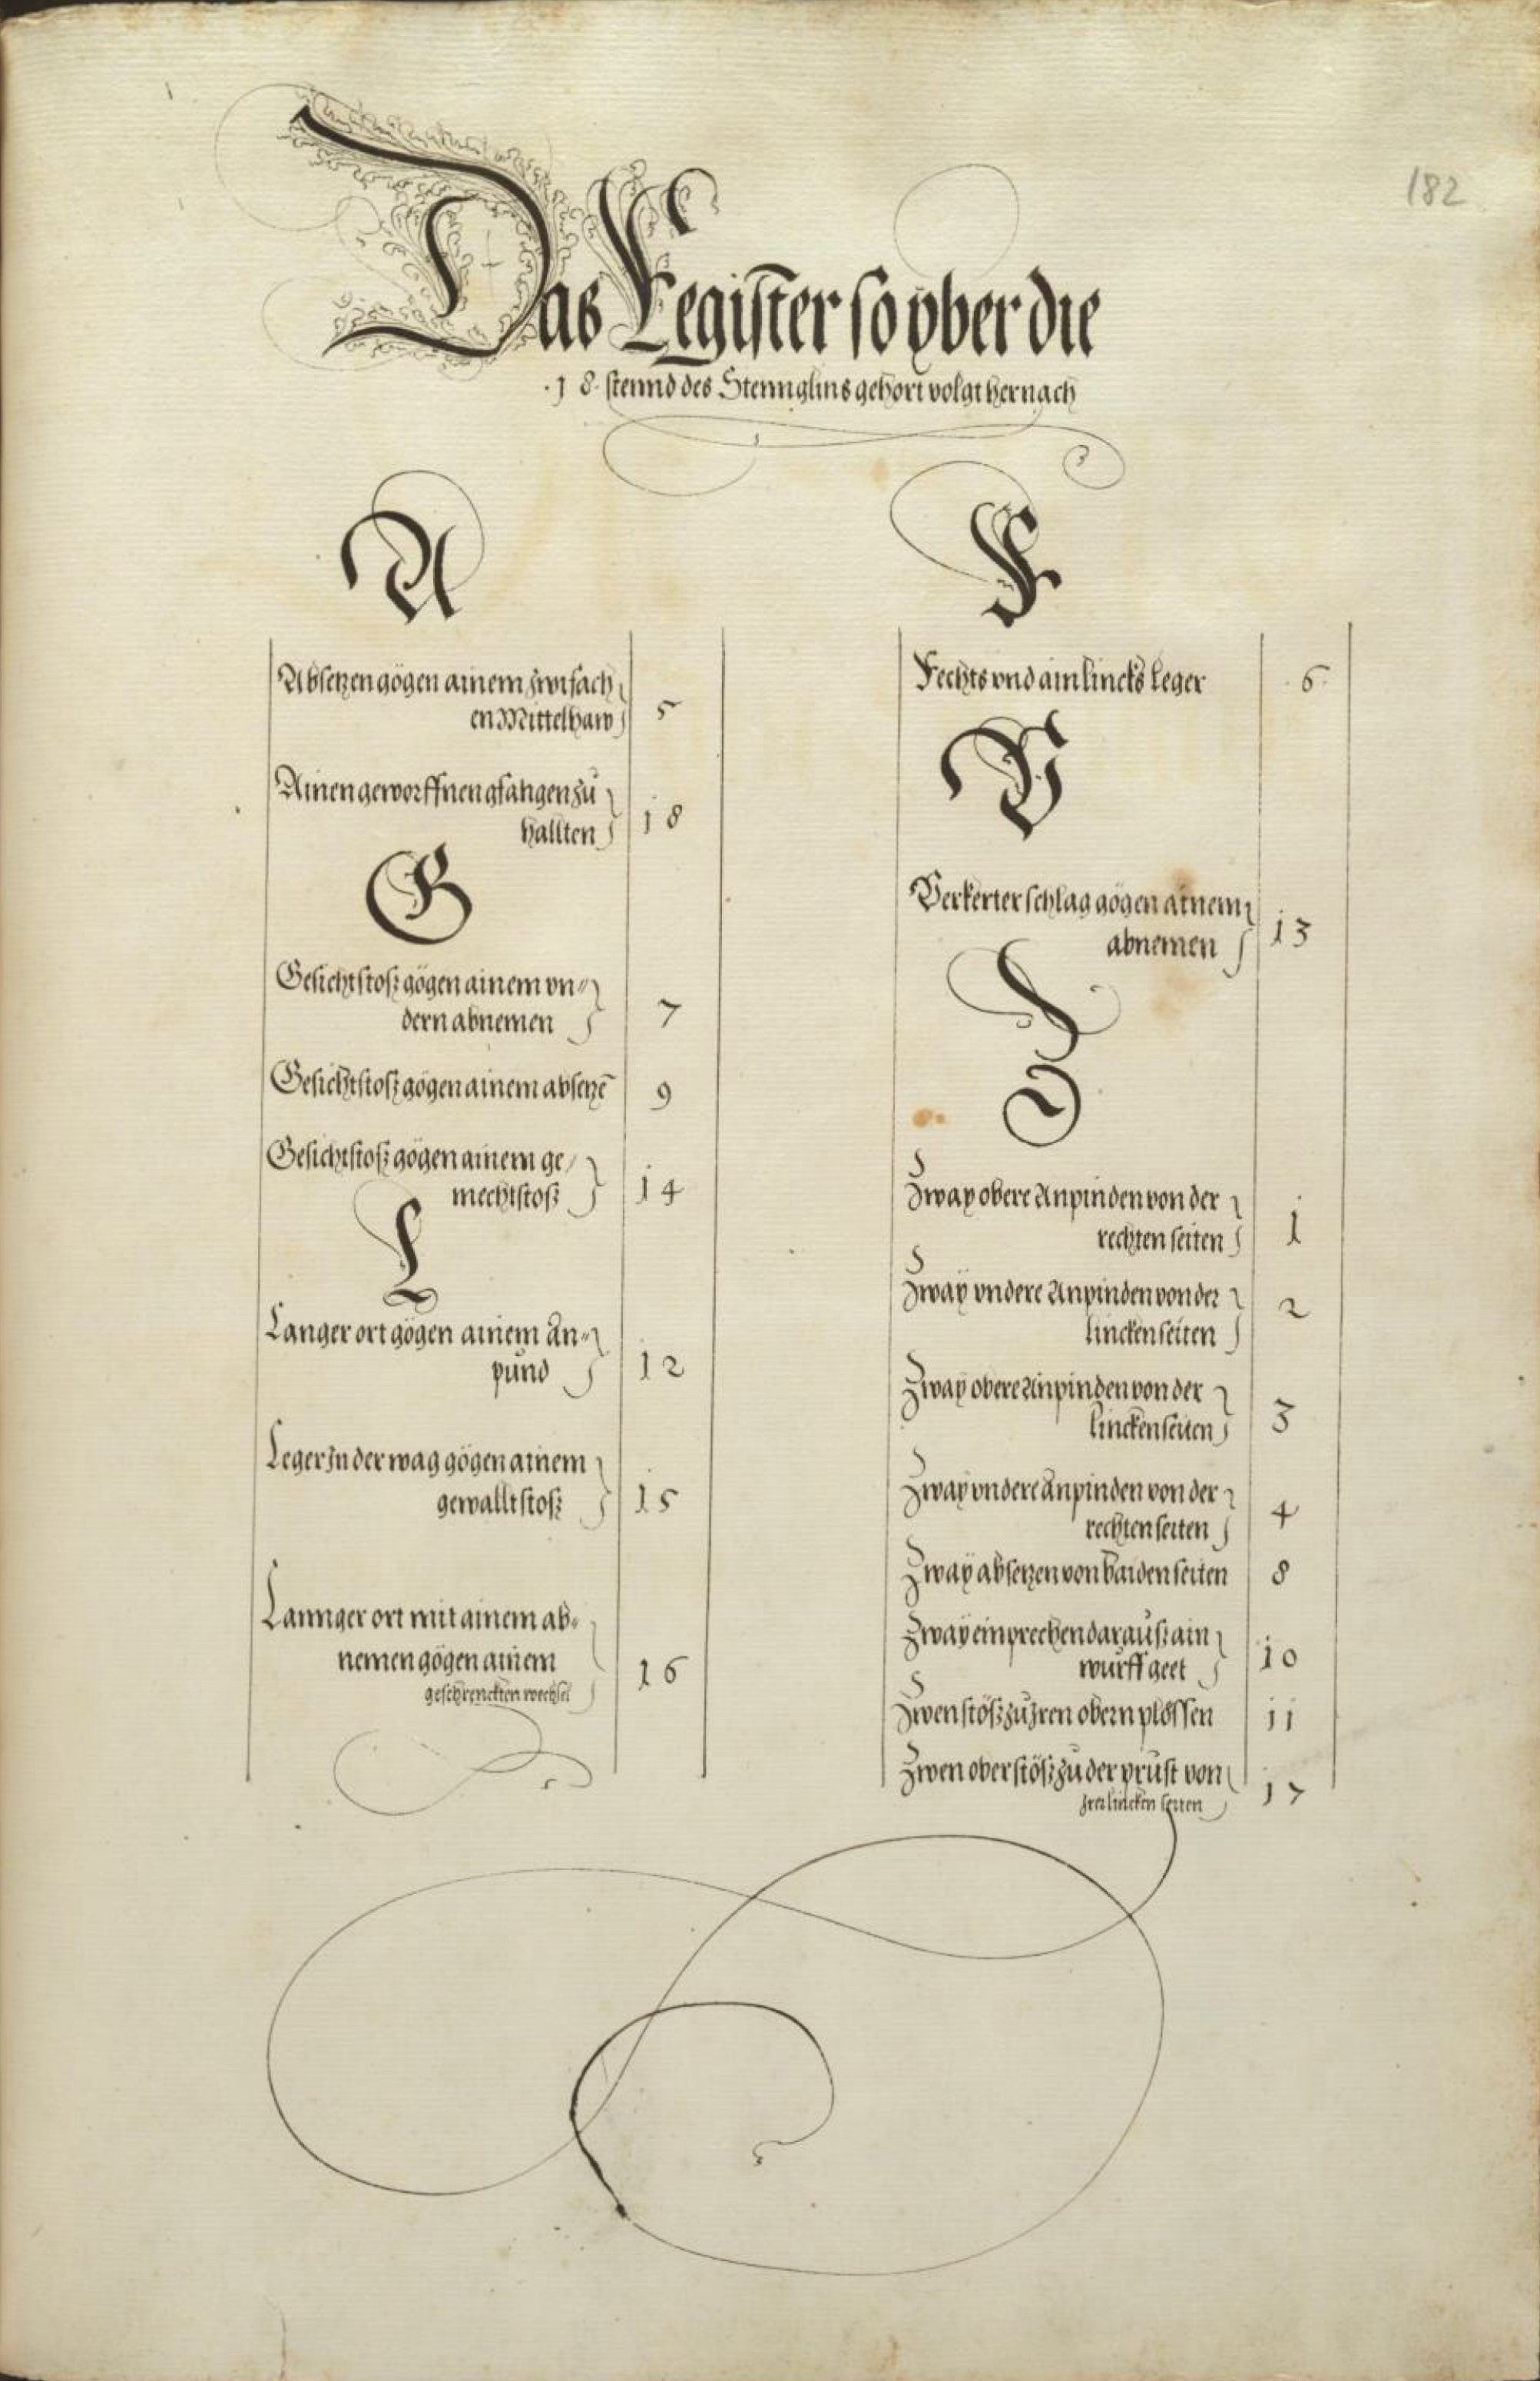 182
Das Register so yber die
.18. stennd des Stennglins gehört volgt hernach
A
Absetzen gögen ainem zwifach
en Mittelhaw 5
Ainen geworffnen gfangen zů
hallten 18
G
Gesichtstosz gögen ainem vn„
dern abnemen 7
Gesichtstosz gögen ainem absetzē 9
Gesichtstosz gögen ainem ge„
mechtstosz 14
L
Langer ort gögen ainem An„
pund 12
Leger In der wag gögen ainem
gewalltstosz 15
Lannger ort mit ainem ab„
nemen gögen ainem
geschrenckten wechsel 16
R
Rechts vnd ain lincks Leger 6
V
Verkerter schlag gögen ainem
abnemen 13
Z
Zway obere Anpinden von der
rechten seiten 1
Zwaÿ vndere Anpinden von der
lincken seiten 2
Zwaÿ obere Anpinden von der
lincken seiten 3
Zwaÿ vndere Anpinden von der
rechten seiten 4
Zwaÿ absetzen von baiden seiten 8
Zwaÿ einprechen darausz ain
wurff geet 10
Zwen stösz zů Iren obern plössen 11
Zwen ober stösz zů der prust von
Irer lincken seiten 17